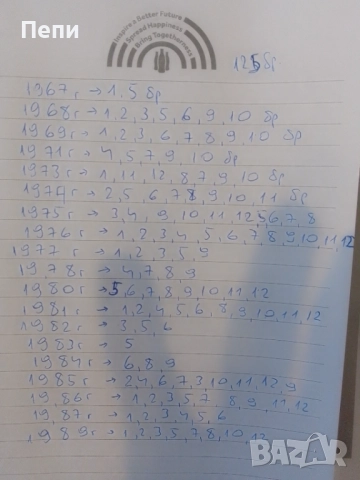 Пепи
Inspire a Better Future
Spread Happiness
Bring Togetherness
125бр.
1967г → 1.5 бр
1968г → 1,2,3,5,6,9,10 бр
1969г → 1,2,3,6,7,8,9,10 бр
1971г → 4,5,7,9,10 бр
1973г → 1,11,12,8,7,9,10 бр
1974г → 2,5,6,7,8,9,10,11 бр
1975г → 3,4,9,10,11,12,5,6,7,8
1976г → 1,2,3,4,5,6,7,8,9,10,11,12
1977г → 1,2,3,5,9
1978г → 4,7,8,9
1980г → 5,6,7,8,9,10,11,12
1981г → 1,2,4,5,6,8,9,10,11,12
1982г → 3,5,6
1983г → 5
1984г → 6,8,9
1985г → 2,4,6,7,3,10,11,12,9
1986г → 1,2,3,5,7,8,9,11,12
1987г → 1,2,3,4,5,6
1989г → 1,2,3,5,7,8,10,12
BAZAR.bg